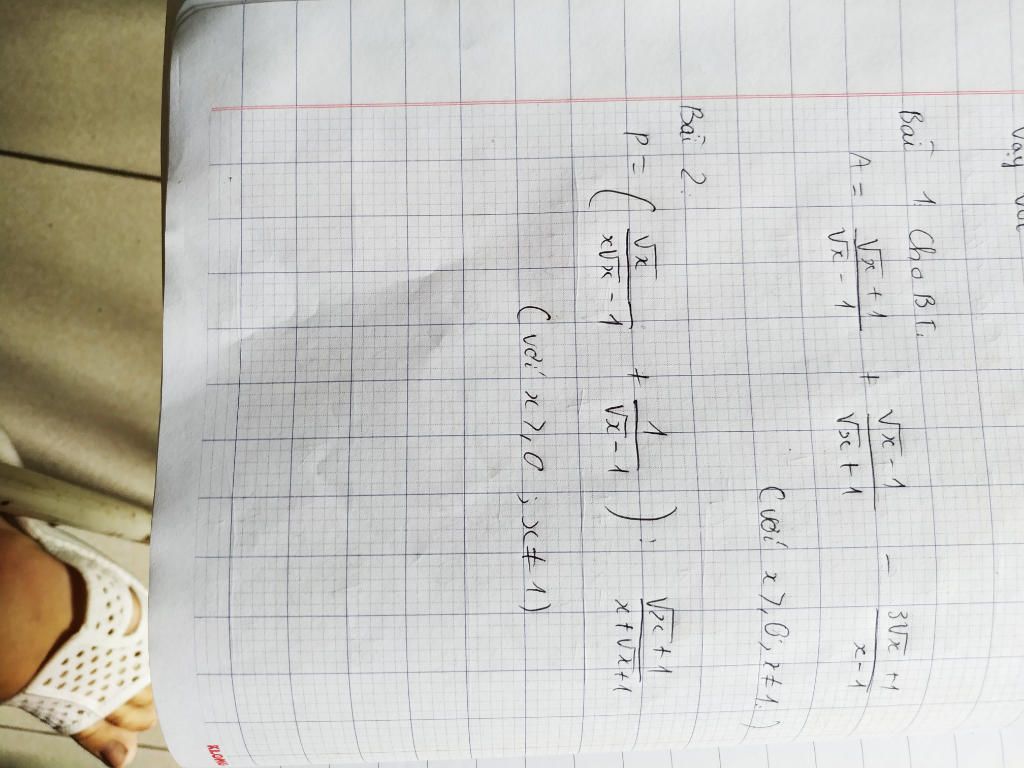 Vậy với
Bài 1. Cho BT.
A = \frac{\sqrt{x}+1}{\sqrt{x}-1} + \frac{\sqrt{x}-1}{\sqrt{x}+1} - \frac{3\sqrt{x}+1}{x-1}
(với x ⩾ 0; x ≠ 1.)
Bài 2.
P = ( \frac{\sqrt{x}}{x\sqrt{x}-1} + \frac{1}{\sqrt{x}-1} ) : \frac{\sqrt{x}+1}{x+\sqrt{x}+1}
(với x ⩾ 0; x ≠ 1)
KLONG